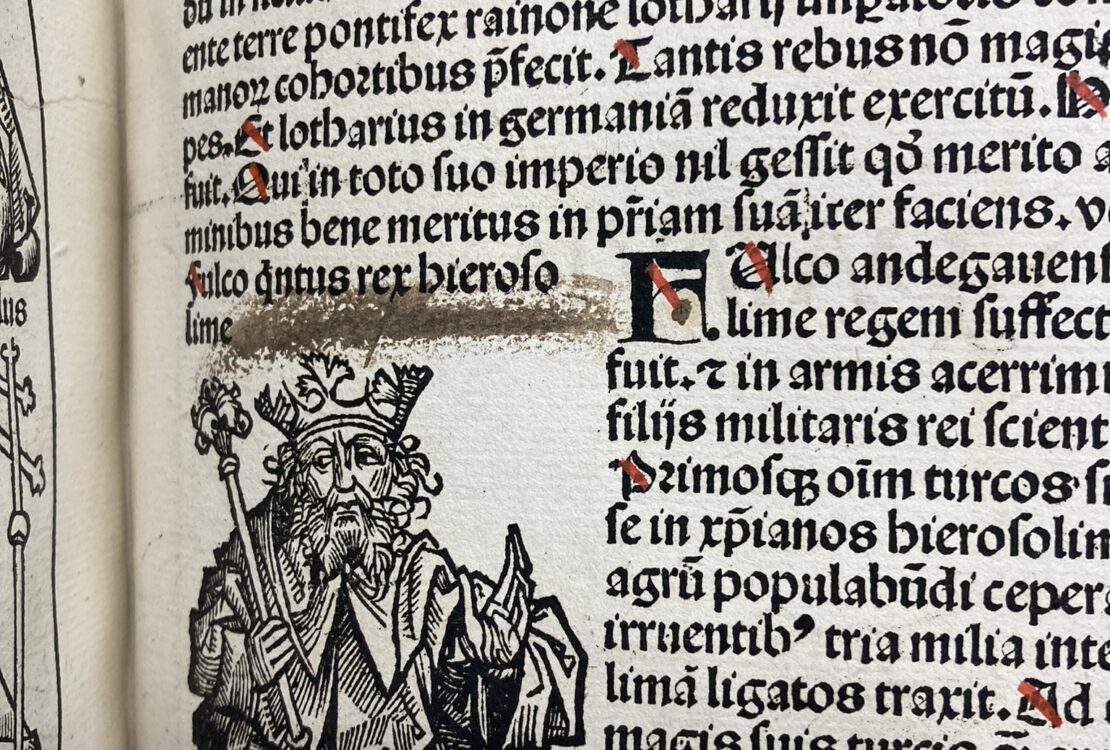 ente terre pontifex rainone lotharij
manoꝝ cohortibus p̃fecit. Tantis rebus nō magis
pes. Et lotharius in germaniā reduxit exercitū.
fuit. Qui in toto suo imperio nil gessit qđ merito a
minibus bene meritus in p̃riam suā iter faciens. v
fulco q̃ntus rex hieroso
lime
FUlco andegauens
lime regem suffect
fuit. ⁊ in armis acerrim
filijs militaris rei scient
Primosqꝫ oīm turcos
se in xp̄ianos hierosolim
agrū populabūdi ceper
irruentibꝰ tria milia inte
limā ligatos traxit. Ad
magis suis turcis